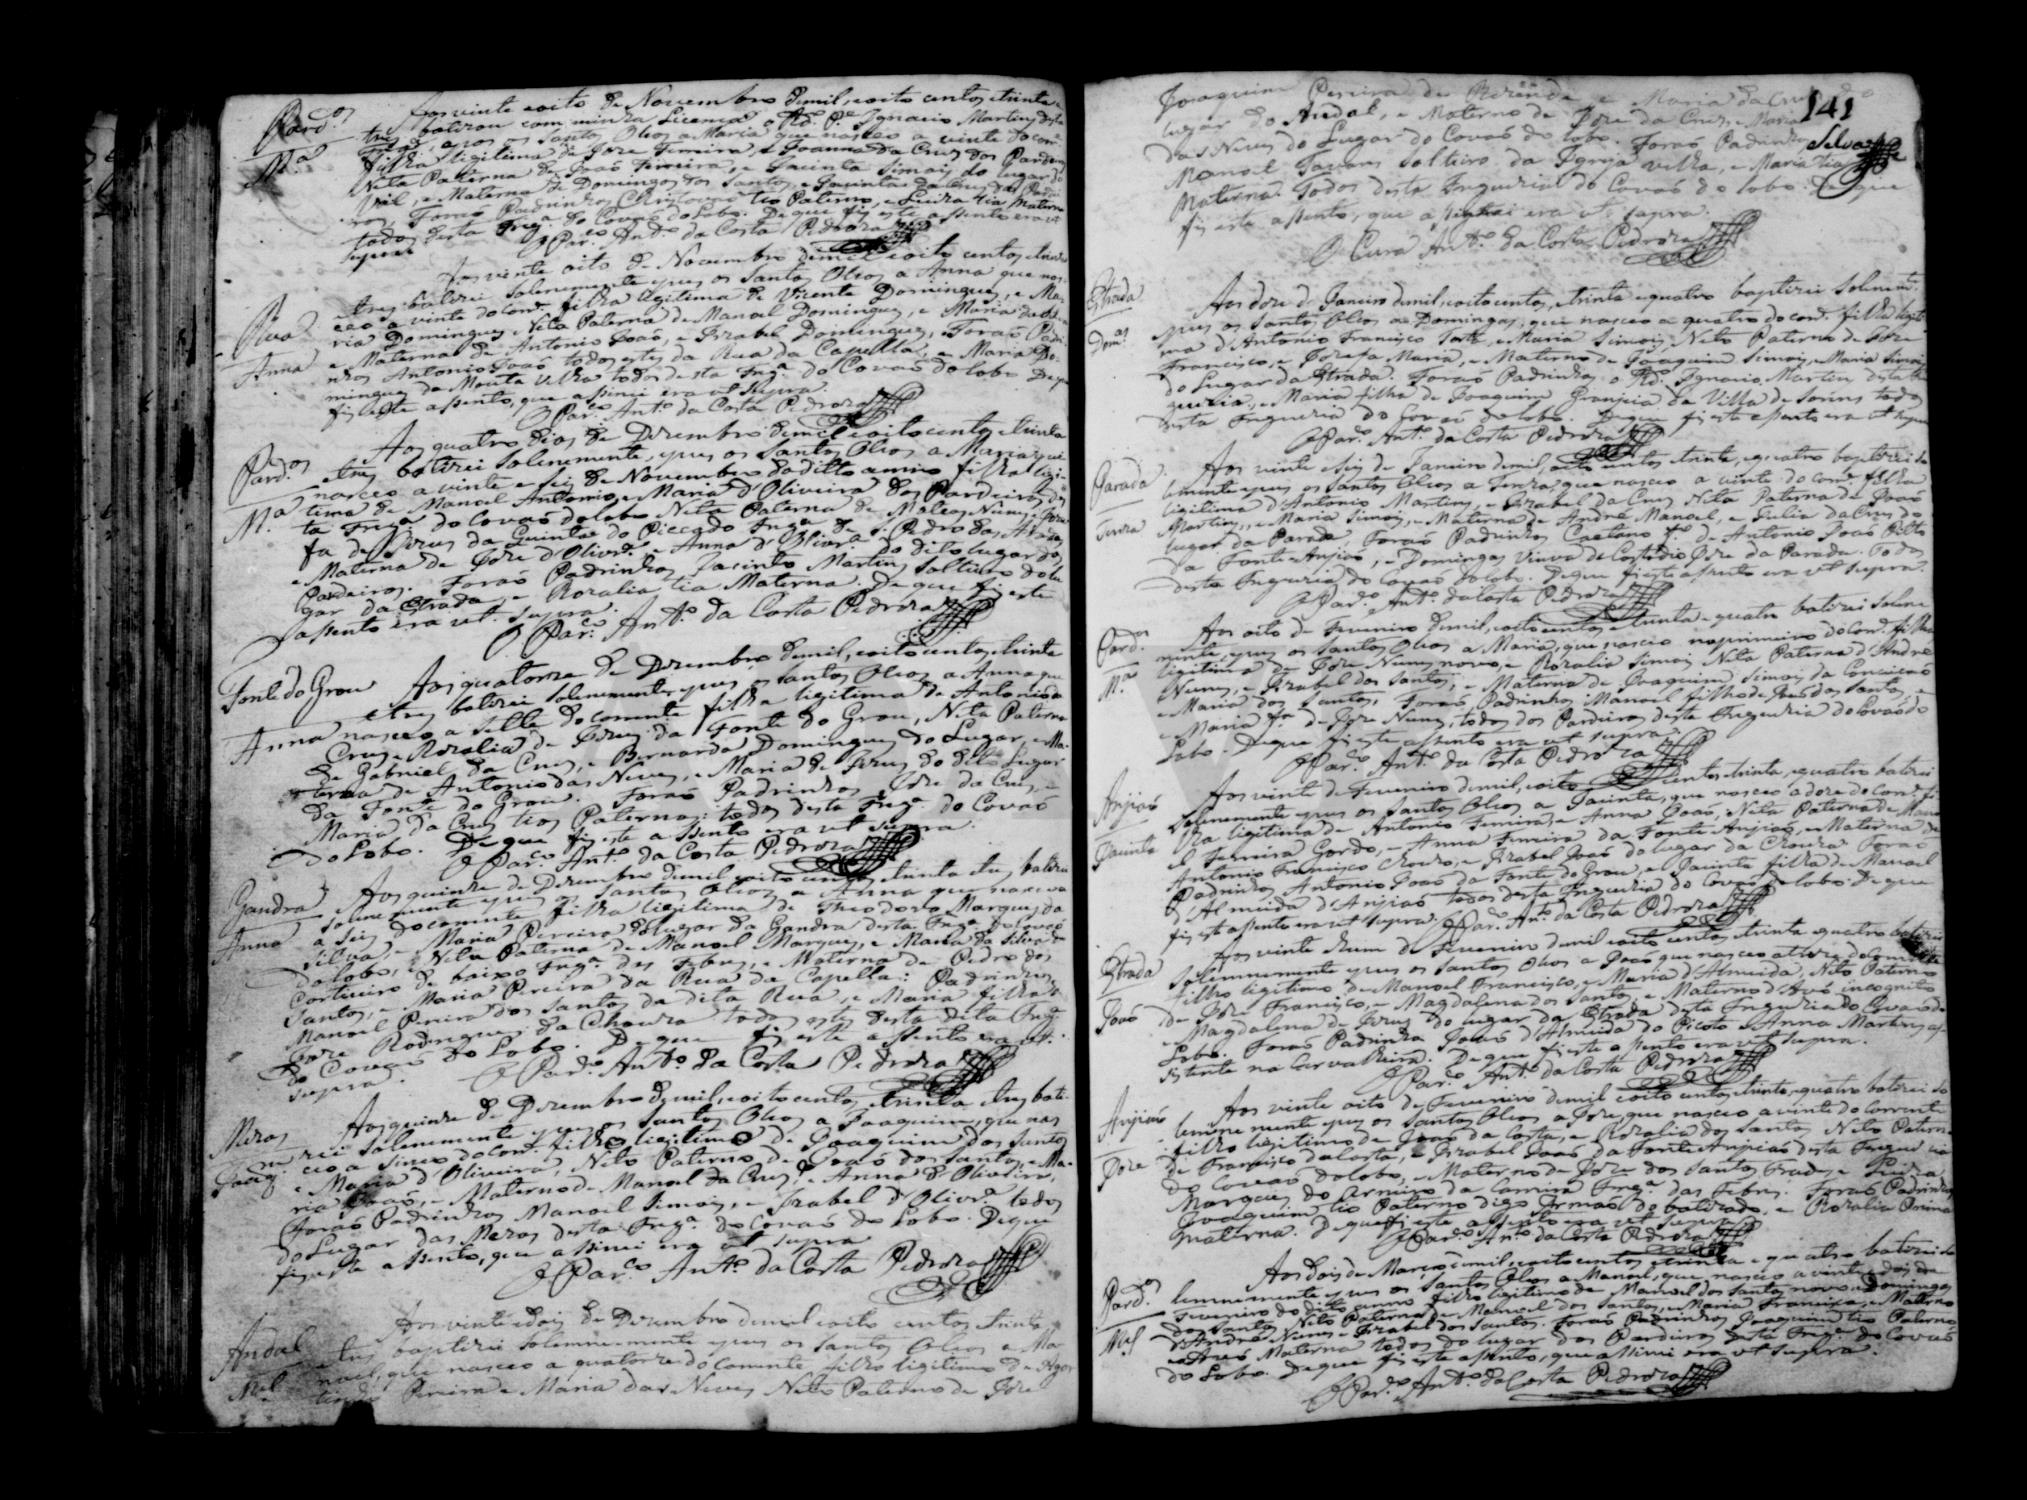 Pard.os Aos vinte e oito de Novembro de mil, e oito centos e trinta e
tres batizou com minha Licença o Rd.º P.e Ignacio Martins desta
e pos os Santos Oleos a Maria que nasceo a vinte do cor.
M.a filha legitima de Joze Ferreira, e Joanna da Cruz dos Pardeiros
Neta Paterna de Joaó Ferreira, e Jacinta Simois do lugar do
e Materna de Domingos dos Santos, e Jacinta da Cruz dos Pardei
ros, Foraó Padrinhos tio Paterno, e Luiza tia Materna
todos desta Freg.a do Covaó do Lobo. De que fiz este assento era ut
supra O Par.co Ant.º da Costa Pedroza
Aos vinte oito de Novembro de mil e oito centos e trinta
e tres batizei solenemente e pus os Santos Oleos a Anna que nas
Rua ceo a vinte do cor.te filha legitima de Vicente Domingues, e Ma
ria Domingues Neta Paterna de Manoel Domingues, e Maria da
Anna e Materna de Antonio Joaó, e Izabel Domingues, Foraó Padri
nhos Antonio Joaó todos estes da Rua da Capella, e Maria Do
mingues da Mouta Velha todos desta Freg.a do Covaó do Lobo De que
fiz este assento, que assinei era ut supra.
O Par.co Ant.º da Costa Pedroza
Aos quatro dias de Dezembro de mil e oito centos e trinta
Pard.os e tres batizei solenemente, e pus os Santos Oleos a Maria que
nasceo a vinte e seis de Novembro do ditto anno filha legi
M.a tima de Manoel Antonio, e Maria d'Oliveira dos Pardeiros des
ta Freg.a do Covaó do lobo Neta Paterna de Nunes, e Joze
fa de Jezus da Quinta do Picado Freg.a de S. Pedro das Aradas
e Materna de Joze d'Olivr.a e Anna d'Oliveira do dito lugar dos
Pardeiros. Foraó Padrinhos Jacinto Martins Solteiro do lu
gar da Estrada, e Rozalia tia Materna. De que fiz este
assento era ut supra.
O Par.co Ant.º da Costa Pedroza
Fonte do Grou Aos quatorze de Dezembro de mil, e oito centos e trinta
e tres batizei solenemente e pus os santos Oleos a Anna que
Anna nasceo a sette do corrente filha legitima de Antonio da
Cruz e Rozalia de Jezus da Fonte do Grou, Neta Paterna
de Gabriel da Cruz, e Bernarda Domingues do Lugar, e Ma
terna de Antonio das Neves, e Maria de Jezus do dito Lugar
da Fonte do Grou. Foraó Padrinhos Joze da Cruz, e
Maria da Cruz tios Paternos: todos desta Freg.a do Covaó
do Lobo. De que fiz este assento era ut supra.
O Par.co Ant.º da Costa Pedroza
Aos quinze de Dezembro de mil e oito centos trinta e tres batizei
Gandra solenemente e pus os santos Oleos a Anna que nasceo
Anna a seis do corrente filha legitima de Theodoro Marques da
Silva, e Maria Pereira do lugar da Gandra desta Freg.a do Covaó
do lobo, e Neta Paterna de Manoel Marques, e Maria da Silva de
Corticeiro de baixo Freg.a das Febres, e Materna de Pedro dos
Santos, e Maria Pereira da Rua da Capella: Padrinhos
Manoel Pereira dos Santos da dita Rua, e Maria filha de
Joze Rodrigues da Choura todos estes desta dita Freg.a
do Covaó do Lobo. De que fiz este assento era ut
supra. O Par.co Ant.º da Costa Pedroza
Aos quinze de Dezembro de mil, e oito centos e trinta e tres bati
Mezas zei solenemente e pus os Santos Oleos a Joaquim, que nas
ceo a sinco do cor.te filho legitimo de Joaquim dos Santos
Joaq.m e Maria d'Oliveira, Neto Paterno de Joaó dos Santos, e Ma
ria Joaó, e Materno de Manoel da Cruz, e Anna d'Oliveira,
Foraó Padrinhos Manoel Simois, e Izabel d'Olivr.a todos
do Lugar das Mezas desta Freg.a do Covaó do Lobo. De que
fiz este assento, que assinei era ut supra
O Par.co Ant.º da Costa Pedroza
Aos vinte e dois de Dezembro de mil e oito centos trinta
Andal e tres baptizei solemnemente e pus os santos Oleos a Ma
noel, que nasceo a quatorze do corrente filho legitimo de Agos
M.el tinho Pereira e Maria das Neves Neto Paterno de Joze
141
Silva
Joaquim Pereira de Rezende e Maria da Cruz do
lugar do Andal, e Materno de Joze da Cruz e Maria
das Neves do Lugar do Covaó do lobo. Foraó Padrinhos
Manoel Tavares solteiro da Igreja velha, e Maria tia
Materna. Todos desta Freguezia do Covaó do lobo. De que
fiz este assento, que assinei era ut supra.
O Cura Ant.º da Costa Pedroza
Estrada Aos doze de Janeiro de mil, e oito centos, e trinta e quatro baptizei solemnente
e pus os Santos Oleos a Domingas, que nasceo a quatro do cor.te filha legiti
Dom.as ma d'Antonio Francisco Torte, e Maria Simois, Neta Paterna de Joze
Francisco, e Jozefa Maria, e Materna de Joaquim Simois, e Maria Simois
do Lugar da Estrada. Foraó Padrinhos o Rd.º Ignacio Martins desta Fre
guezia, e Maria filha de Joaquim Granjeia da Villa de Sorins todos
desta Freguezia do Covaó do lobo. De que fiz este assento era ut supra
O Par.co Ant.º da Costa Pedroza
Aos vinte e seis de Janeiro de mil, e oito centos e trinta, e quatro baptizei so
Parada lemnemente e pus os Santos Oleos a Tereza, que nasceo a vinte do cor.te filha
legitima d'Antonio Martins, e Izabel da Cruz Neta Paterna de Joaó
Tereza Martins, e Maria Simois, e Materna de André Manoel, e Julia da Cruz do
lugar da Parada Foraó Padrinhos Caetano f.º de Antonio Joaó Pitto
da Fonte Anjiaó, e Domingas Viuva de Custodio Joze da Parada. Todos
desta Freguezia do Covaó do lobo. De que fiz este assento era ut supra.
O Par.co Ant.º da Costa Pedroza
Aos oito de Fevereiro de mil, e oito centos e trinta e quatro batizei solene
Pard.os mente, e pus os santos Oleos a Maria, que nasceo no primeiro do cor.te filha
legitima de Joze Nunes novo, e Rozalia Simois Neta Paterna d'André
M.a Nunes, e Izabel dos Santos, e Materna de Joaquim Simois da Conceicaó
e Maria dos Santos, Foraó Padrinhos Manoel filho de dos Santos, e
Maria f.a de Joze Nunes, todos dos Pardeiros desta Freguezia do Covaó do
Lobo. De que fiz este assento era ut supra.
O Par.co Ant.º da Costa Pedroza
Anjiaó Aos vinte de Fevereiro de mil, e oito centos e trinta, e quatro batizei
solenemente e pus os santos Oleos a Jacinta, que nasceo a doze do cor.te fi
Jacinta lha legitima de Antonio Ferreira, e Anna Joaó, Neta Paterna de Mano
el Ferreira Gordo, e Anna Ferreira da Fonte Anjiaó, e Materna de
Antonio Francisco Chouro, e Izabel Joaó do lugar da Choura Foraó
Padrinhos Antonio Joaó da Fonte do Grou, e Jacinta filha de Manoel
d'Almeida d'Anjiaó todos desta Freguezia do Covaó do lobo. De que
fiz este assento era ut supra. O Par.co Ant.º da Costa Pedroza
Aos vinte e hum de Fevereiro de mil e oito centos e trinta e quatro batizei
Estrada solemnemente e pus os santos Oleos a Joaó que nasceo a treze do corrente
filho legitimo de Manoel Francisco, e Maria d'Almeida, Neto Paterno
Joaó de Joze Francisco, e Magdalena dos Santos, e Materno d'Avô incognito
e Magdalena de Jezus do lugar da Estrada desta Freguezia do Covaó do
Lobo. Foraó Padrinhos Joaó d'Almeida do Picoto e Anna Martins as
sistente na Carvalheira. De que fiz este assento era ut supra.
O Par.co Ant.º da Costa Pedroza
Anjiaó Aos vinte oito de Fevereiro de mil e oito centos e trinta, e quatro batizei so
lemne mente e pus os Santos Oleos a Joze, que nasceo a vinte do corrente
Joze filho legitimo de Joaó da Costa, e Rozalia dos Santos Neto Paterno
de Francisco da Costa, e Izabel Joaó da Fonte Anjiaó desta Freguezia
do Covaó do lobo, e Materno de Joze dos Santos Frade, e Luiza
Marques do Arneiro da Camera Freg.a das Febres. Foraó Padrinhos
Joaquim tio Paterno digo Irmaó do batizado, e Rozalia Prima
materna. De que fiz este assento era ut supra
O Par.co An.to da Costa Pedroza
Aos dois de Março de mil, e oito centos e trinta e quatro batizei so
Pard.os lemnemente e pus os Santos Oleos a Manoel, que nasceo a vinte e dois de
Fevereiro do dito anno filho legitimo de Manoel dos Santos novo e Domingas
M.el dos Santos, Neto Paterno de Manoel dos Santos, e Maria Francisca, e Materno
d'André Nunes e Izabel dos Santos. Foraó Padrinhos Joaquim tio Paterno
e Avó Materna todos do lugar dos Pardeiros desta Freg.a do Covaó
do Lobo. De que fiz este assento, que assinei era ut supra.
O Par.co Ant.º da Costa Pedroza